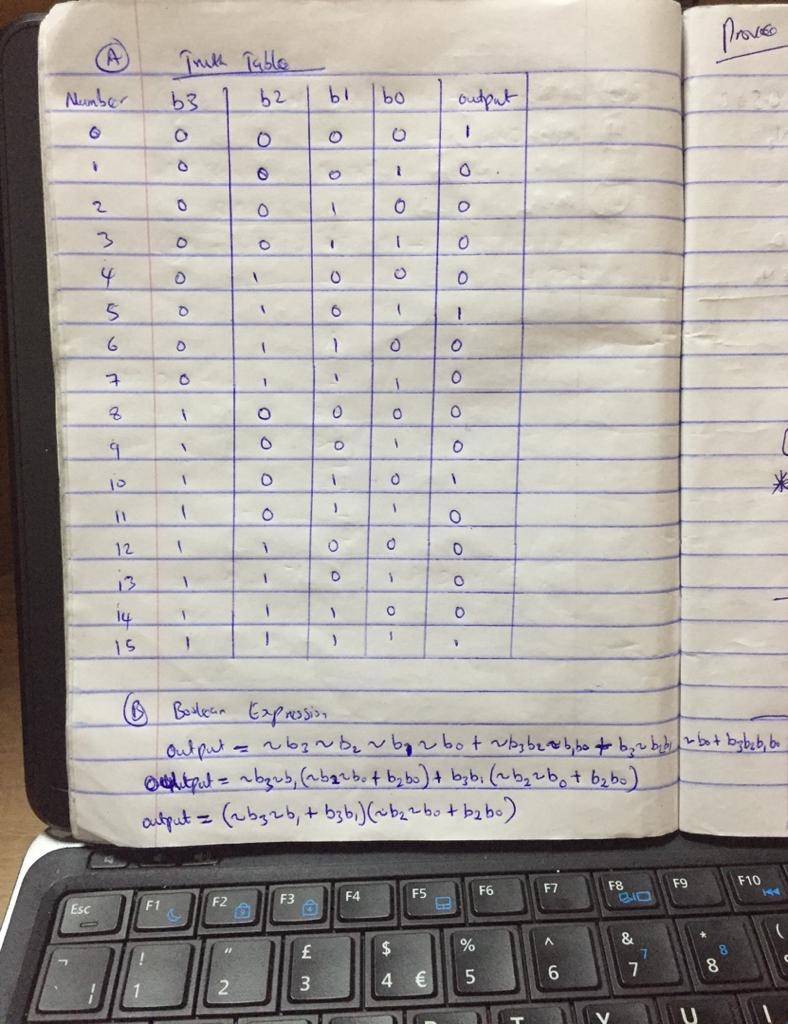 A Truth Table
Number b3 b2 b1 b0 output
0 0 0 0 0 1
1 0 0 0 1 0
2 0 0 1 0 0
3 0 0 1 1 0
4 0 1 0 0 0
5 0 1 0 1 1
6 0 1 1 0 0
7 0 1 1 1 0
8 1 0 0 0 0
9 1 0 0 1 0
10 1 0 1 0 1
11 1 0 1 1 0
12 1 1 0 0 0
13 1 1 0 1 0
14 1 1 1 0 0
15 1 1 1 1 1
B Boolean Expression
output = ~b3~b2~b1~b0 + ~b3b2~b1b0 + b3~b2b1~b0 + b3b2b1b0
output = ~b3~b1(~b2~b0 + b2b0) + b3b1(~b2~b0 + b2b0)
output = (~b3~b1 + b3b1)(~b2~b0 + b2b0)
Esc F1 F2 F3 F4 F5 F6 F7 F8 F9 F10
¬ ¦ ! 1 " 2 £ 3 $ 4 € % 5 ^ 6 & 7 7 * 8 8 (